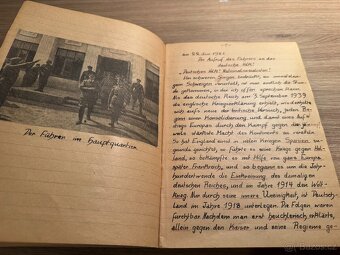 Der Führer im Hauptquartier.
am 22. Juni 1941
Der Aufruf des Führers an das
deutsche Volk!
"Deutsches Volk! Nationalsozialisten!
Von schweren Sorgen bedrückt, zu monatelangem
Schweigen verurteilt, ist nun die Stunde
gekommen, in der ich offen sprechen kann.
das deutsche Reich am 3. September 1939
die englische Kriegserklärung erhielt, wiederholte
sich aufs neue der britische Versuch, jeden Beginn
einer Konsolidierung und damit eines
Aufstiegs Europas durch den Kampf gegen die
jeweils stärkste Macht des Kontinents zu vereiteln.
So hat England einst in vielen Kriegen Spanien zugrunde
gerichtet, so führte es seine Kriege gegen Holland,
so bekämpfte es mit Hilfe von ganz Europa
später Frankreich, und so begann es um die Jahrhundertwende
die Einkreisung des damaligen
deutschen Reiches, und im Jahre 1914 den Weltkrieg.
Nur durch seine innere Uneinigkeit, ist Deutschland
im Jahre 1918 unterlegen. Die Folgen waren
furchtbar. Nachdem man erst heuchlerisch erklärte,
allein gegen den Kaiser und seine Regieme ge-